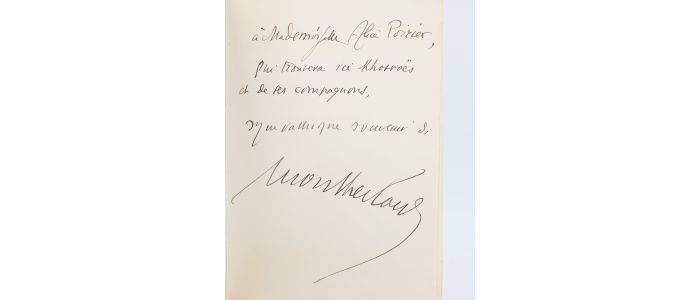 à Mademoiselle Alice Poirier,
qui trouvera ici Khosroës
et de ses compagnons,
sympathique souvenir de
Montherlant